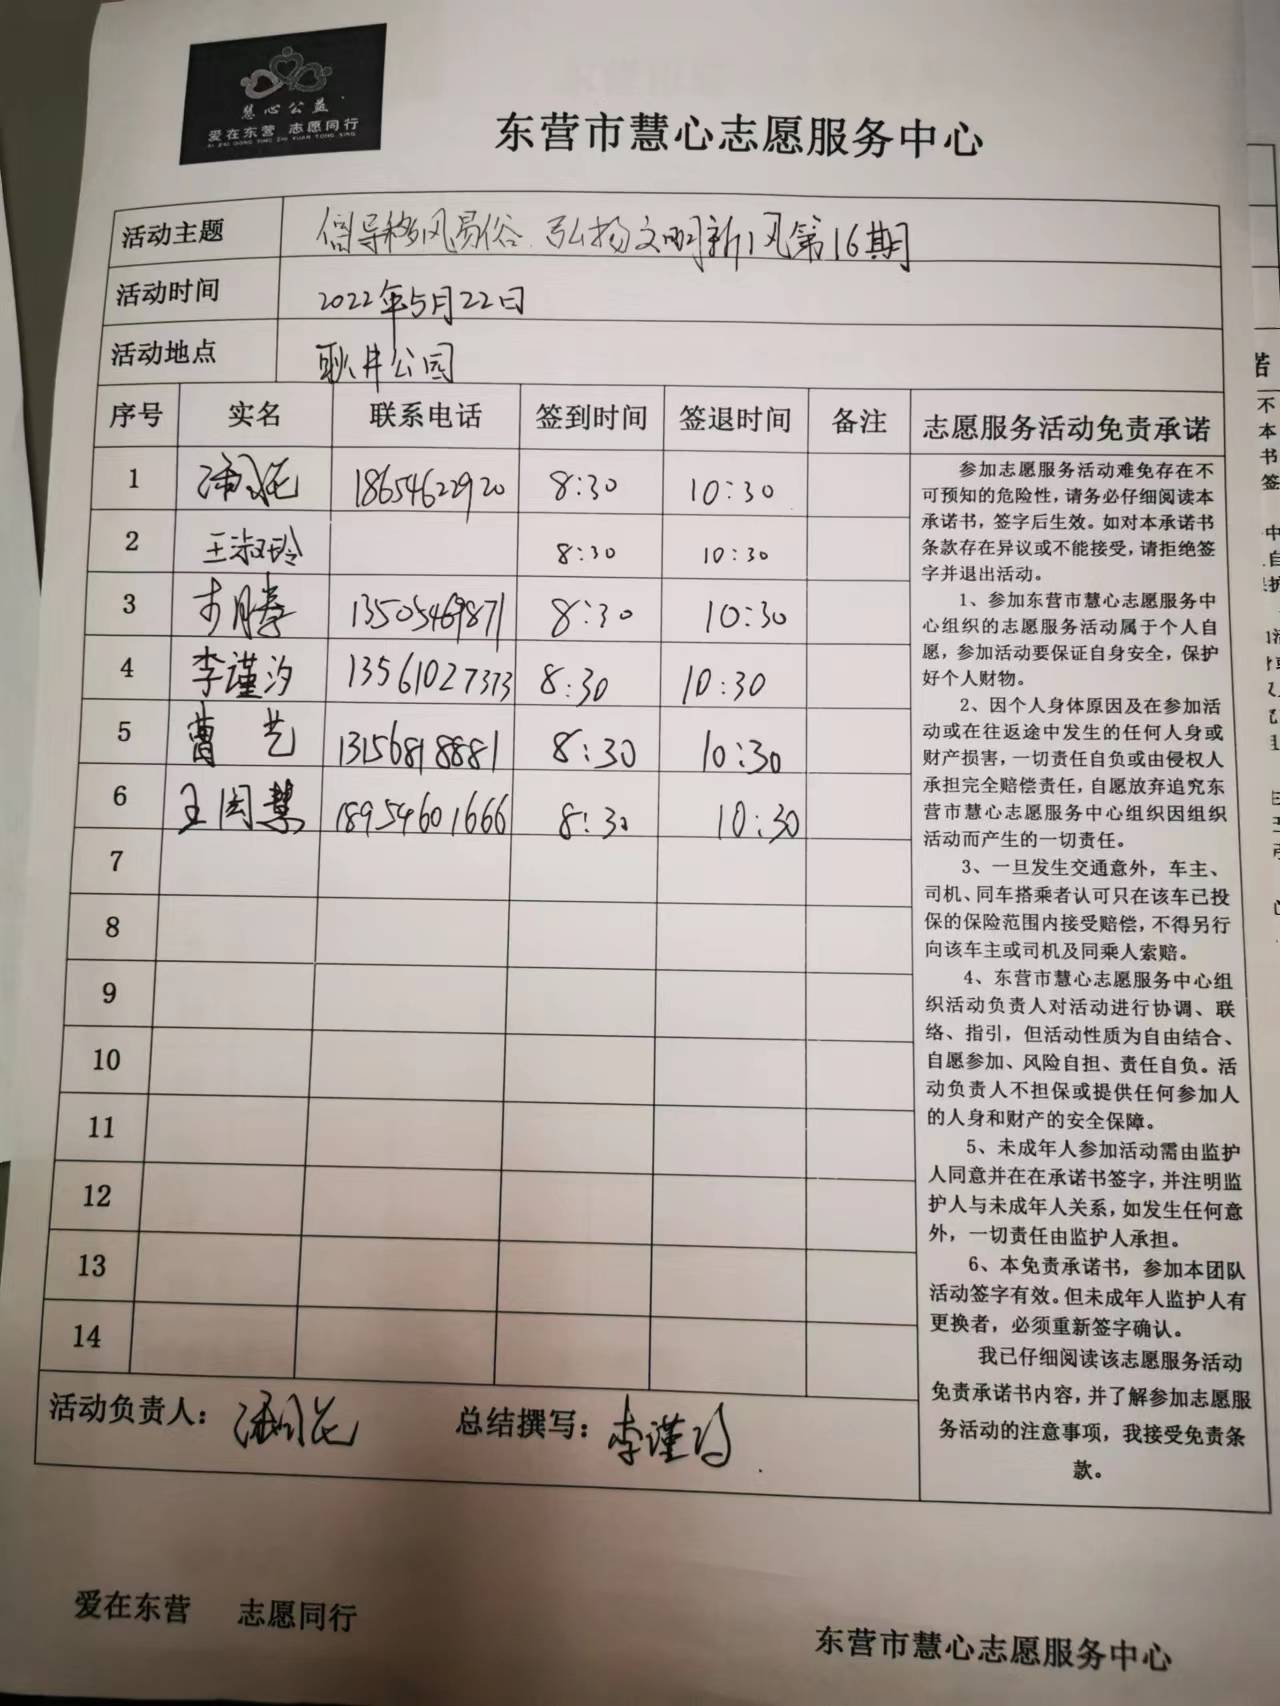 慧心公益
爱在东营 志愿同行
AI ZAI DONG YING ZHI YUAN TONG XING
东营市慧心志愿服务中心
活动主题 倡导移风易俗.弘扬文明新风第16期
活动时间 2022年5月22日
活动地点 耿井公园
序号 实名 联系电话 签到时间 签退时间 备注
1 18654622920 8:30 10:30
2 王淑玲 8:30 10:30
3 13505469871 8:30 10:30
4 李谨汐 13561027373 8:30 10:30
5 曹艺 13156818881 8:30 10:30
6 王国慧 18954601666 8:30 10:30
7
8
9
10
11
12
13
14
活动负责人: 总结撰写: 李谨汐
志愿服务活动免责承诺
参加志愿服务活动难免存在不
可预知的危险性，请务必仔细阅读本
承诺书，签字后生效。如对本承诺书
条款存在异议或不能接受，请拒绝签
字并退出活动。
1、参加东营市慧心志愿服务中
心组织的志愿服务活动属于个人自
愿，参加活动要保证自身安全，保护
好个人财物。
2、因个人身体原因及在参加活
动或在往返途中发生的任何人身或
财产损害，一切责任自负或由侵权人
承担完全赔偿责任，自愿放弃追究东
营市慧心志愿服务中心组织因组织
活动而产生的一切责任。
3、一旦发生交通意外，车主、
司机、同车搭乘者认可只在该车已投
保的保险范围内接受赔偿，不得另行
向该车主或司机及同乘人索赔。
4、东营市慧心志愿服务中心组
织活动负责人对活动进行协调、联
络、指引，但活动性质为自由结合、
自愿参加、风险自担、责任自负。活
动负责人不担保或提供任何参加人
的人身和财产的安全保障。
5、未成年人参加活动需由监护
人同意并在在承诺书签字，并注明监
护人与未成年人关系，如发生任何意
外，一切责任由监护人承担。
6、本免责承诺书，参加本团队
活动签字有效。但未成年人监护人有
更换者，必须重新签字确认。
我已仔细阅读该志愿服务活动
免责承诺书内容，并了解参加志愿服
务活动的注意事项，我接受免责条
款。
爱在东营 志愿同行
东营市慧心志愿服务中心